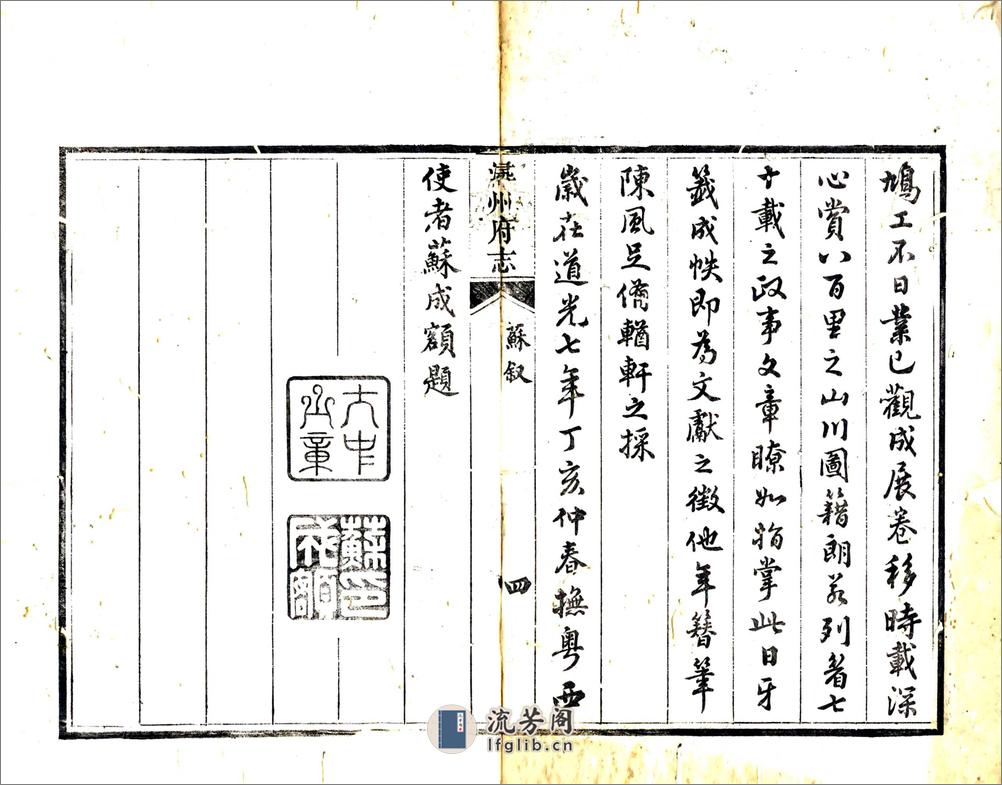 鳩工不日業已觀成展卷移時載深
心賞八百里之山川圖籍朗若列眉七
十載之政事文章瞭如指掌此日牙
籤成帙即為文獻之徵他年簪筆
陳風足備輶軒之採
歲在道光七年丁亥仲春撫粵西
潯州府志
蘇叙
四
使者蘇成額題
大中丞章
蘇印成額
流芳阁
lfglib.cn